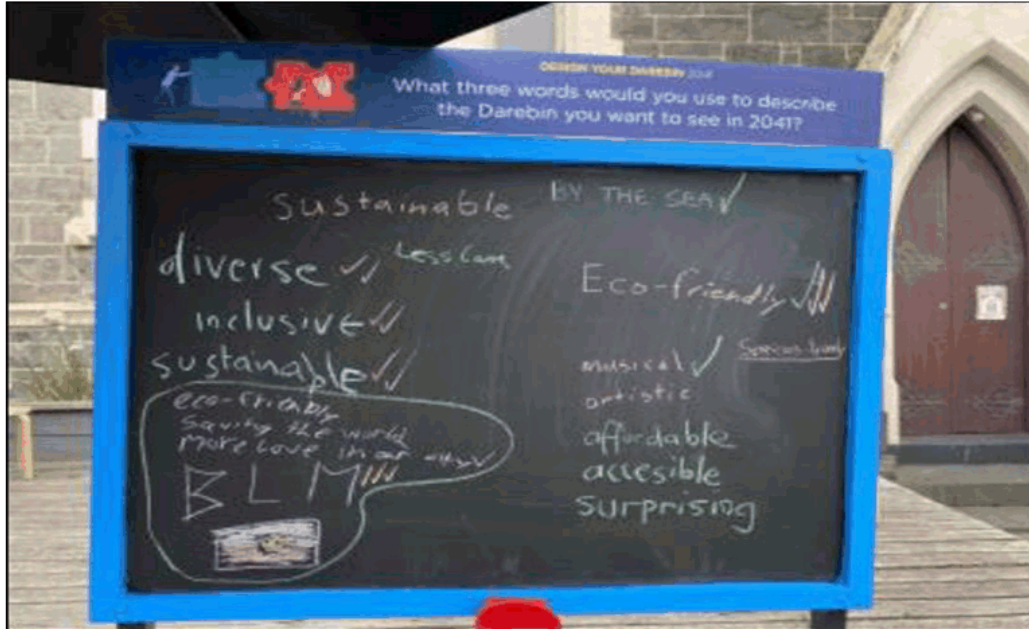 DESIGN YOUR DAREBIN 2041
What three words would you use to describe
the Darebin you want to see in 2041?
sustainable
BY THE SEA
diverse
Less
inclusive
sustainable
eco-friendly
saving the world
more love in our
BLM
Eco-friendly
musical
artistic
affordable
accesible
surprising